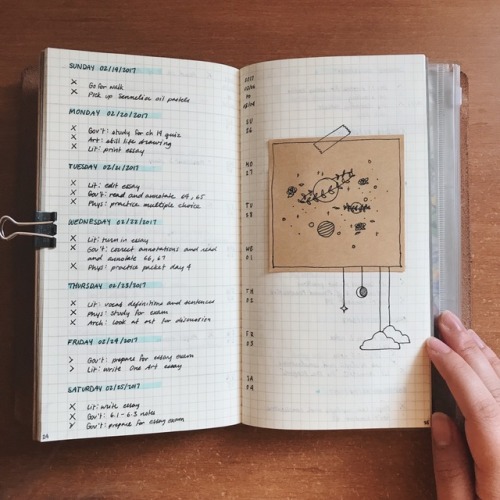 SUNDAY 02/19/2017
X Go for walk
X Pick up Sennelier oil pastels
MONDAY 02/20/2017
X Gov't: study for ch 14 quiz
X Art: still life drawing
X Lit: print essay
TUESDAY 02/21/2017
X Lit: edit essay
X Gov't: read and annotate 64, 65
X Phys: practice multiple choice
WEDNESDAY 02/22/2017
X Lit: turn in essay
X Gov't: correct annotations and read
and annotate 66, 67
X Phys: practice packet day 4
THURSDAY 02/23/2017
X Lit: vocab definitions and sentences
X Phys: study for exam
X Arch: look at art for discussion
FRIDAY 02/24/2017
> Gov't: prepare for essay exam
> Lit: write One Art essay
SATURDAY 02/25/2017
X Lit: write essay
X Gov't: 6.1-6.3 notes
Gov't: prepare for essay exam
SU
26
MO
27
TU
28
WE
01
TH
02
FR
03
SA
04